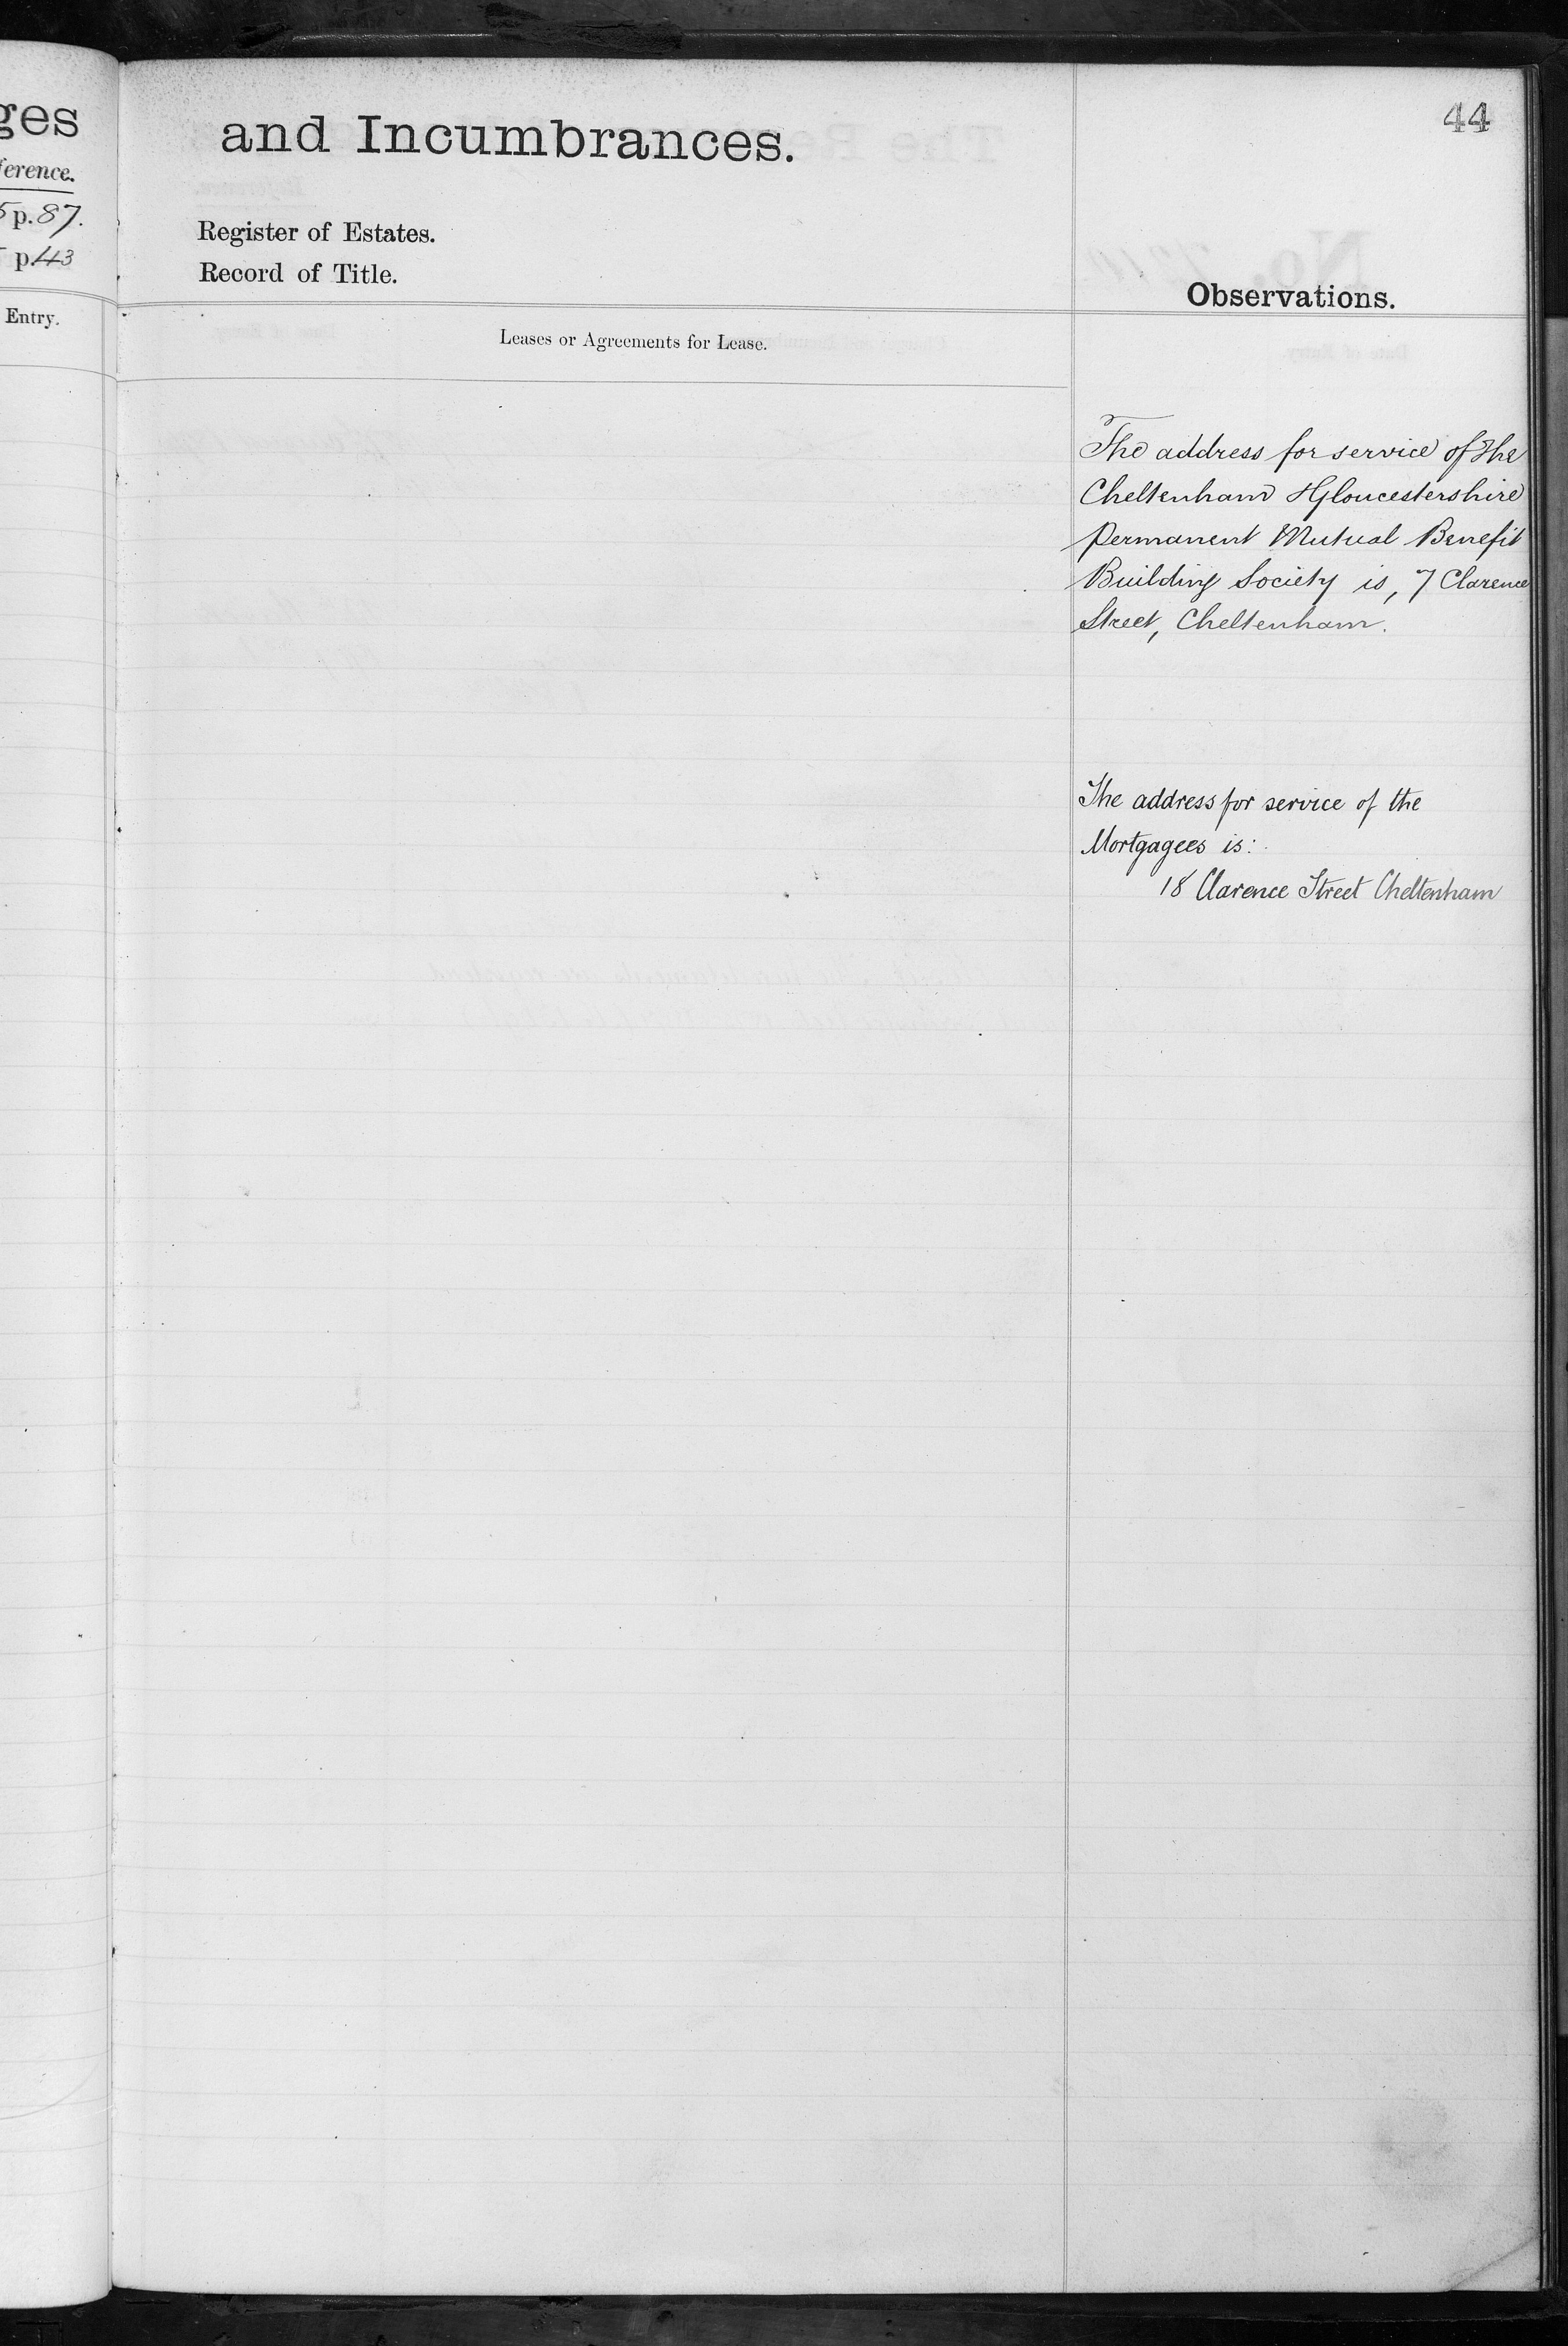 44
ges
ference.
p. 87.
p. 43
Entry.
and Incumbrances.
Register of Estates.
Record of Title.
Leases or Agreements for Lease.
Observations.
The address for service of the
Cheltenham & Gloucestershire
Permanent Mutual Benefit
Building Society is, 7 Clarence
Street, Cheltenham.
The address for service of the
Mortgagees is:
18 Clarence Street Cheltenham